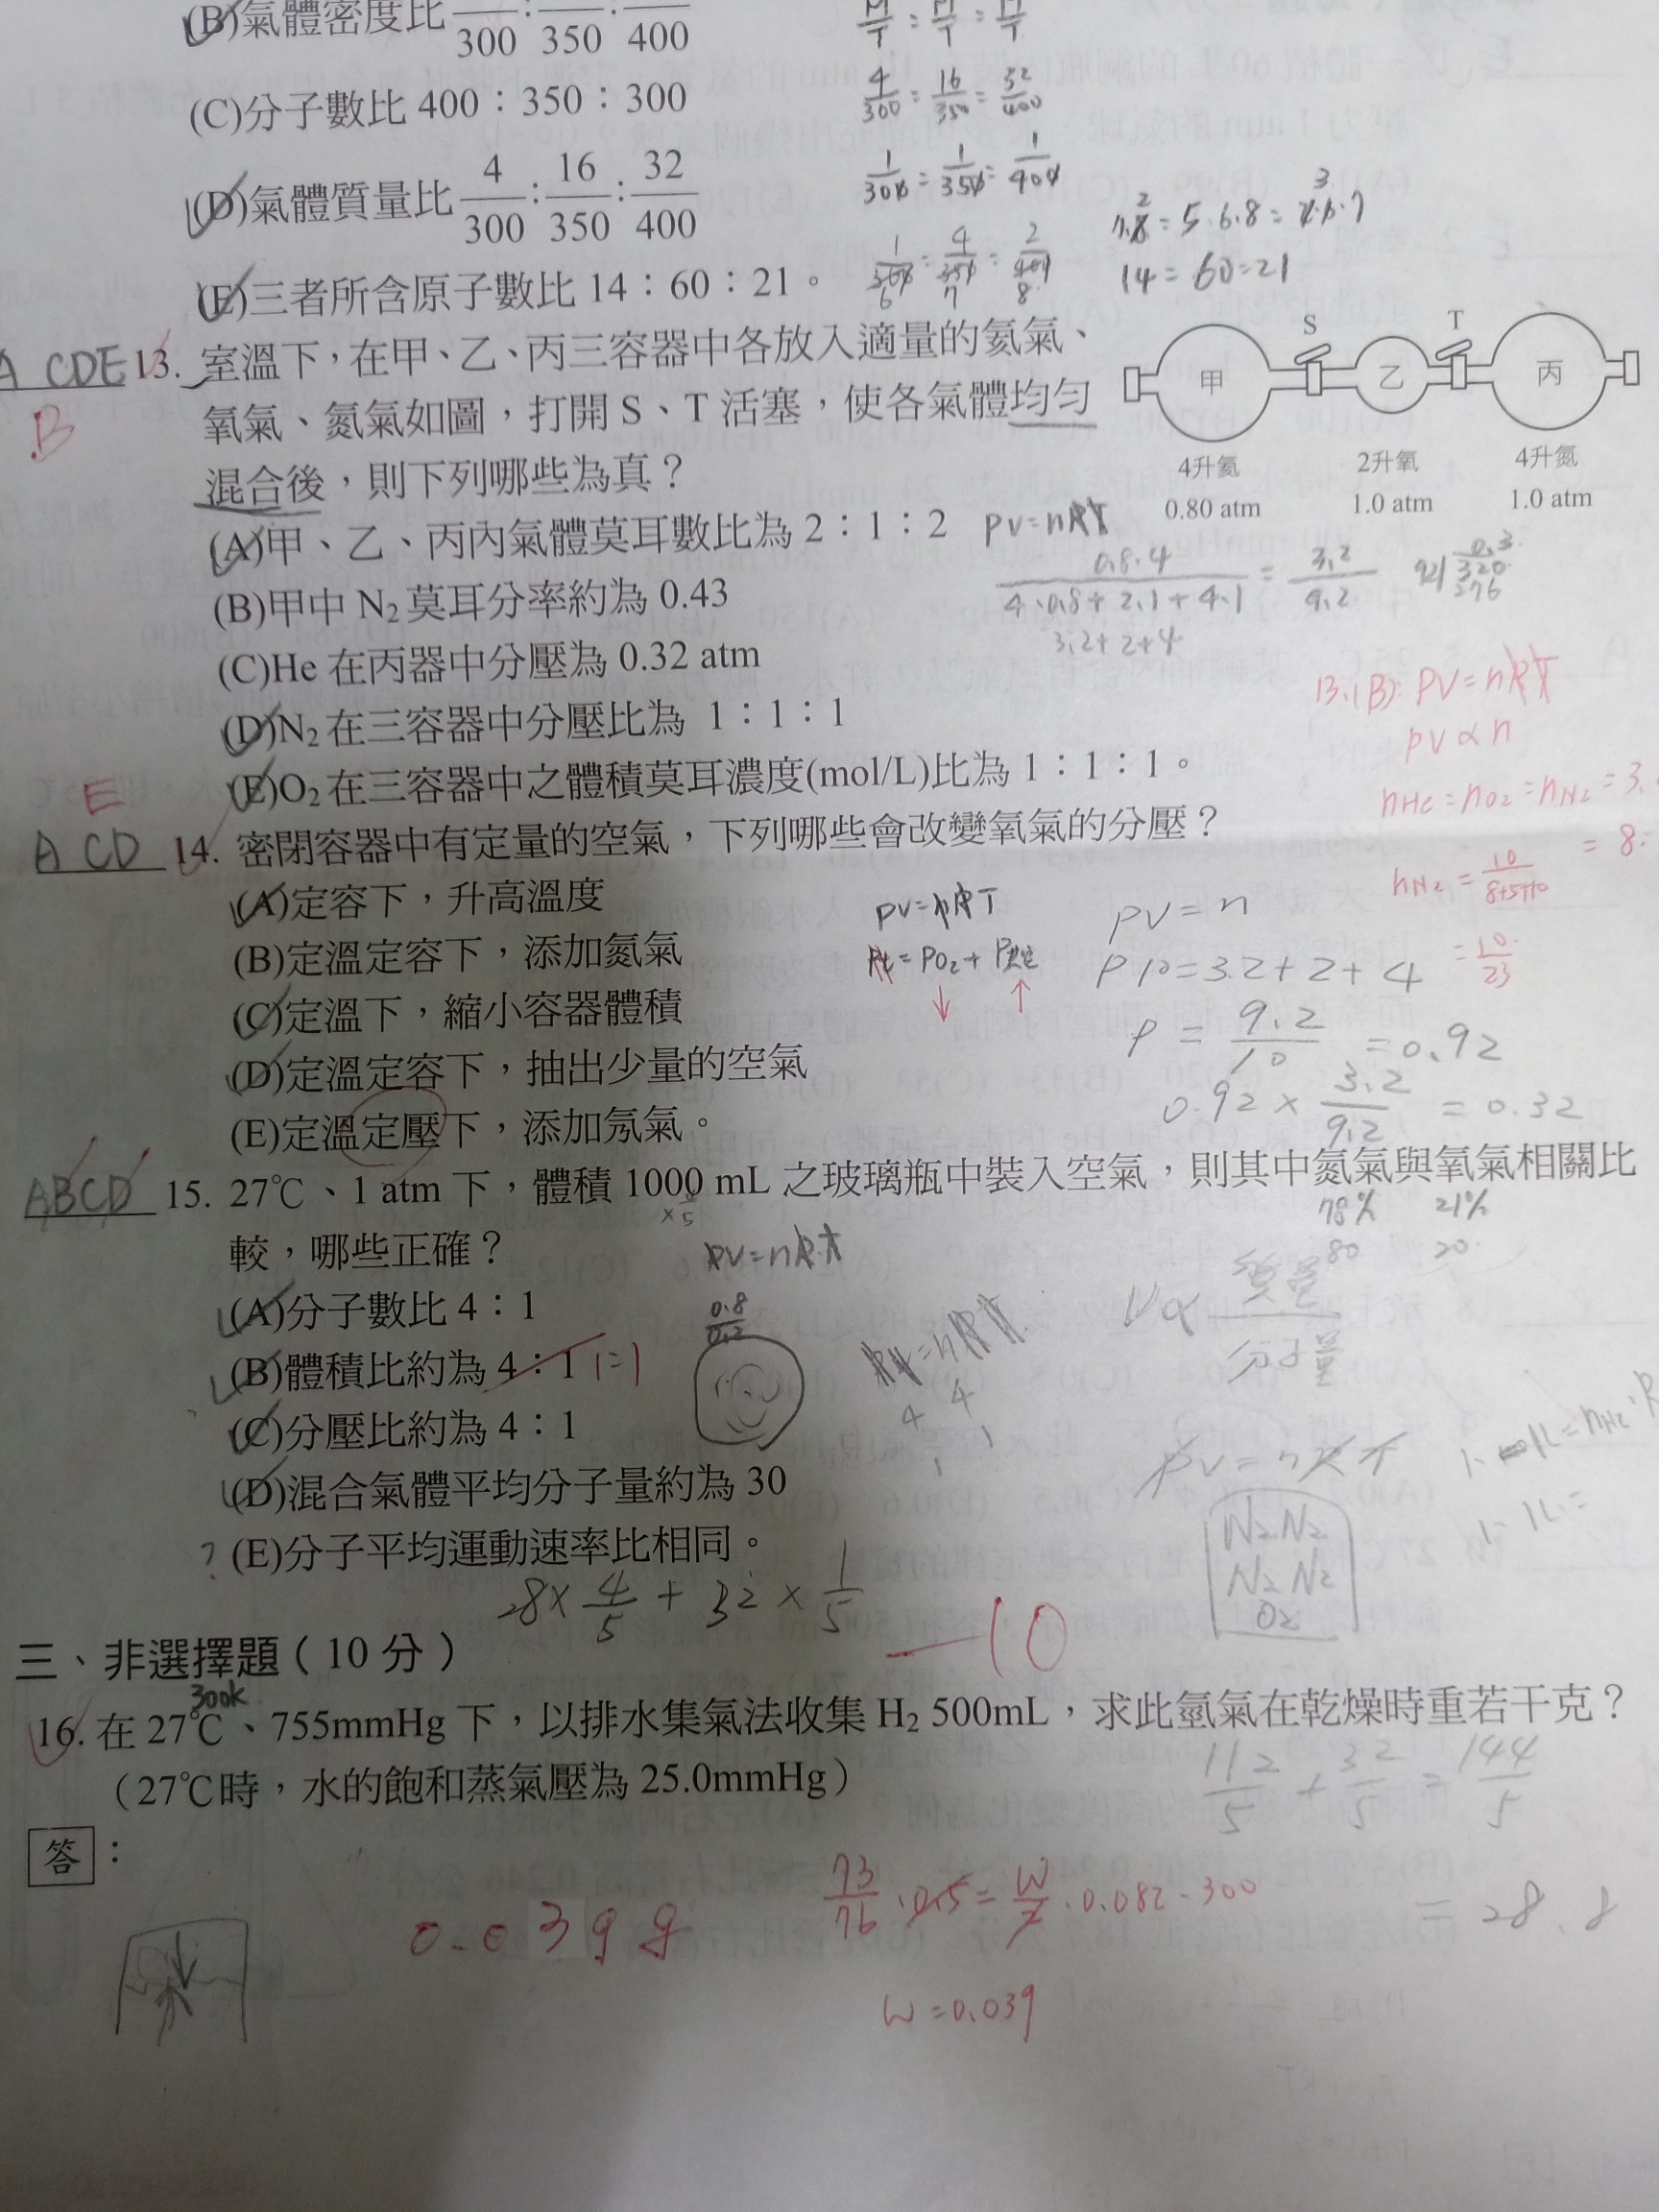 (B)氣體密度比 /300 : /350 : /400
(C)分子數比 400：350：300
(D)氣體質量比 4/300 : 16/350 : 32/400
(E)三者所含原子數比 14：60：21。
4/300 : 16/350 = 32/400
14 = 60 = 21
A CDE 13. 室溫下，在甲、乙、丙三容器中各放入適量的氦氣、
B
氧氣、氮氣如圖，打開 S、T 活塞，使各氣體均勻
混合後，則下列哪些為真？
S T
甲 乙 丙
4升氦 2升氧 4升氮
0.80 atm 1.0 atm 1.0 atm
(A)甲、乙、丙內氣體莫耳數比為 2：1：2
PV=nRT
(B)甲中 N₂ 莫耳分率約為 0.43
0.8.4 / 4.0.8+2.1+4.1 = 3.2/9.2
3.2+2+4
(C)He 在丙器中分壓為 0.32 atm
13.(B): PV=nRT
(D)N₂ 在三容器中分壓比為 1：1：1
PV∝n
(E)O₂ 在三容器中之體積莫耳濃度(mol/L)比為 1：1：1。
nHe = nO₂ = nN₂ = 3.
= 8:
nN₂ = 10/8+5+10
= 10/23
E
A CD 14. 密閉容器中有定量的空氣，下列哪些會改變氧氣的分壓？
(A)定容下，升高溫度
PV=nRT
PV=n
(B)定溫定容下，添加氮氣
P10=3.2+2+4
(C)定溫下，縮小容器體積
P = 9.2/10 = 0.92
(D)定溫定容下，抽出少量的空氣
0.92 × 3.2/9.2 = 0.32
(E)定溫定壓下，添加氖氣。
ABCD 15. 27℃、1 atm 下，體積 1000 mL 之玻璃瓶中裝入空氣，則其中氮氣與氧氣相關比
×5
78% 21%
80 20
較，哪些正確？
PV=nRT
(A)分子數比 4：1
0.8/0.2
V∝ 質量/分子量
(B)體積比約為 4：1 1=1
(C)分壓比約為 4：1
(D)混合氣體平均分子量約為 30
? (E)分子平均運動速率比相同。
PV=nRT
N₂N₂
N₂N₂
O₂
28×4/5+32×1/5
三、非選擇題（10 分）
—10
300k
16. 在 27℃、755mmHg 下，以排水集氣法收集 H₂ 500mL，求此氫氣在乾燥時重若干克？
（27℃時，水的飽和蒸氣壓為 25.0mmHg）
112/5 + 32/5 = 144/5
= 28.8
答：
0.039g
73/76 .0.5= W/2 .0.082.300
W=0.039